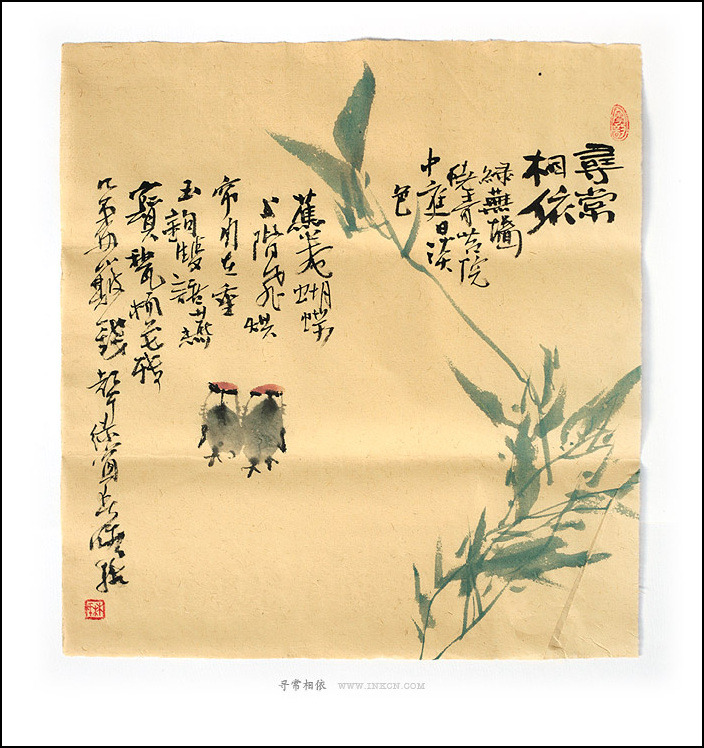 尋常
相依
綠蕪墻
繞青苔院
中庭日淡
芭
蕉卷蝴蝶
上階飛烘
帘自在垂
玉鉤雙語燕
寶甃楊花轉
几處簸錢聲綠窗春睡輕
寻常相依 WWW.INKCN.COM